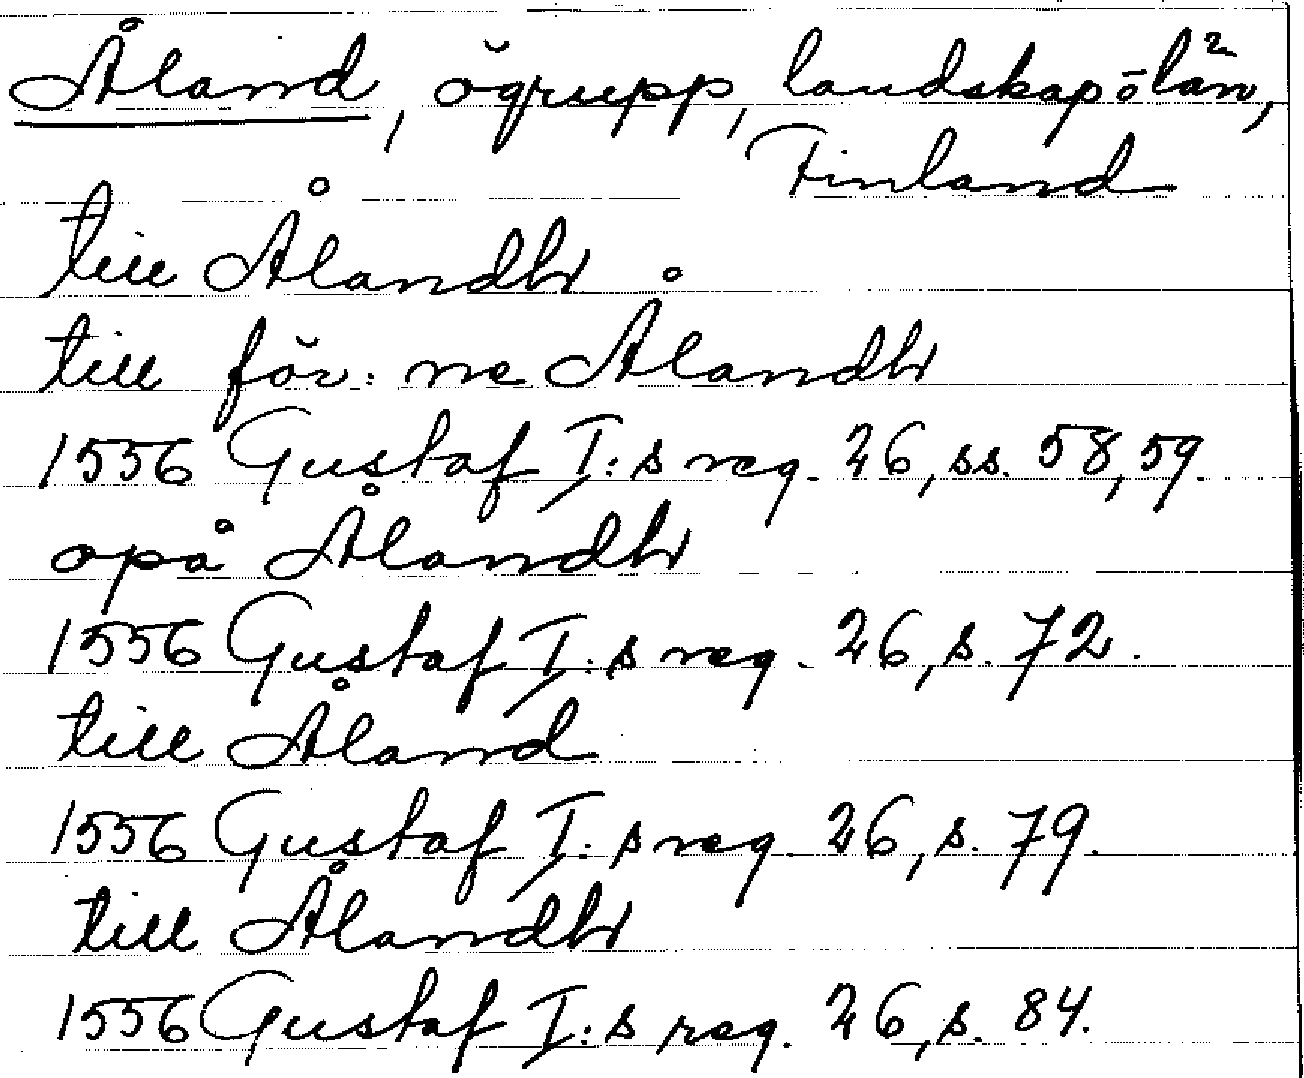 Åland, ögrupp, landskap ö län,²
Finland
till Ålandh
till för: ne Ålandh
1556 Gustaf I:s reg. 26, ss. 58, 59.
opå Ålandh
1556 Gustaf I:s reg. 26, s. 72.
till Åland
1556 Gustaf I:s reg. 26, s. 79.
till Ålandh
1556 Gustaf I:s reg. 26, s. 84.